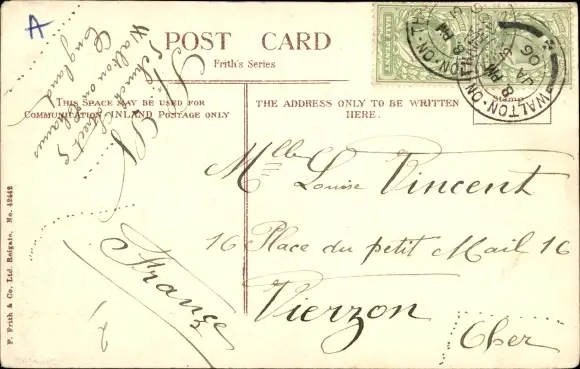 A
POST CARD
Frith's Series
THIS SPACE MAY BE USED FOR
COMMUNICATION INLAND POSTAGE ONLY
THE ADDRESS ONLY TO BE WRITTEN
HERE.
HALF PENNY
Stamp
WALTON-ON-TH
8 PM
06
WALTON-ON-TH
8 PM
Street
Walton on Thames
England
Mlle Louise Vincent
16 Place du petit Mail 16
Vierzon
Cher
France
F. Frith & Co. Ltd. Reigate. No. 42442